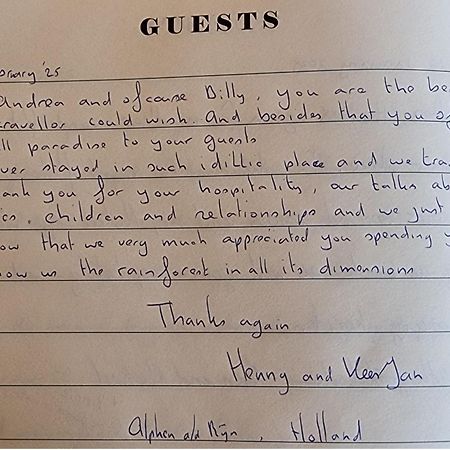 GUESTS
bruary '25
andrea and ofcause Dilly, you are the be
travellor could wish. And besides that you o
ll paradise to your guests
ver stayed in such idillic place and we tra
ank you for your hospitality, our talks ab
cs, children and relationships and we just
ow that we very much appreciated you spending y
how us the rainforest in all its dimensions
Thanks again
Henny and KeesJan
Alphen a/d Rijn, Holland